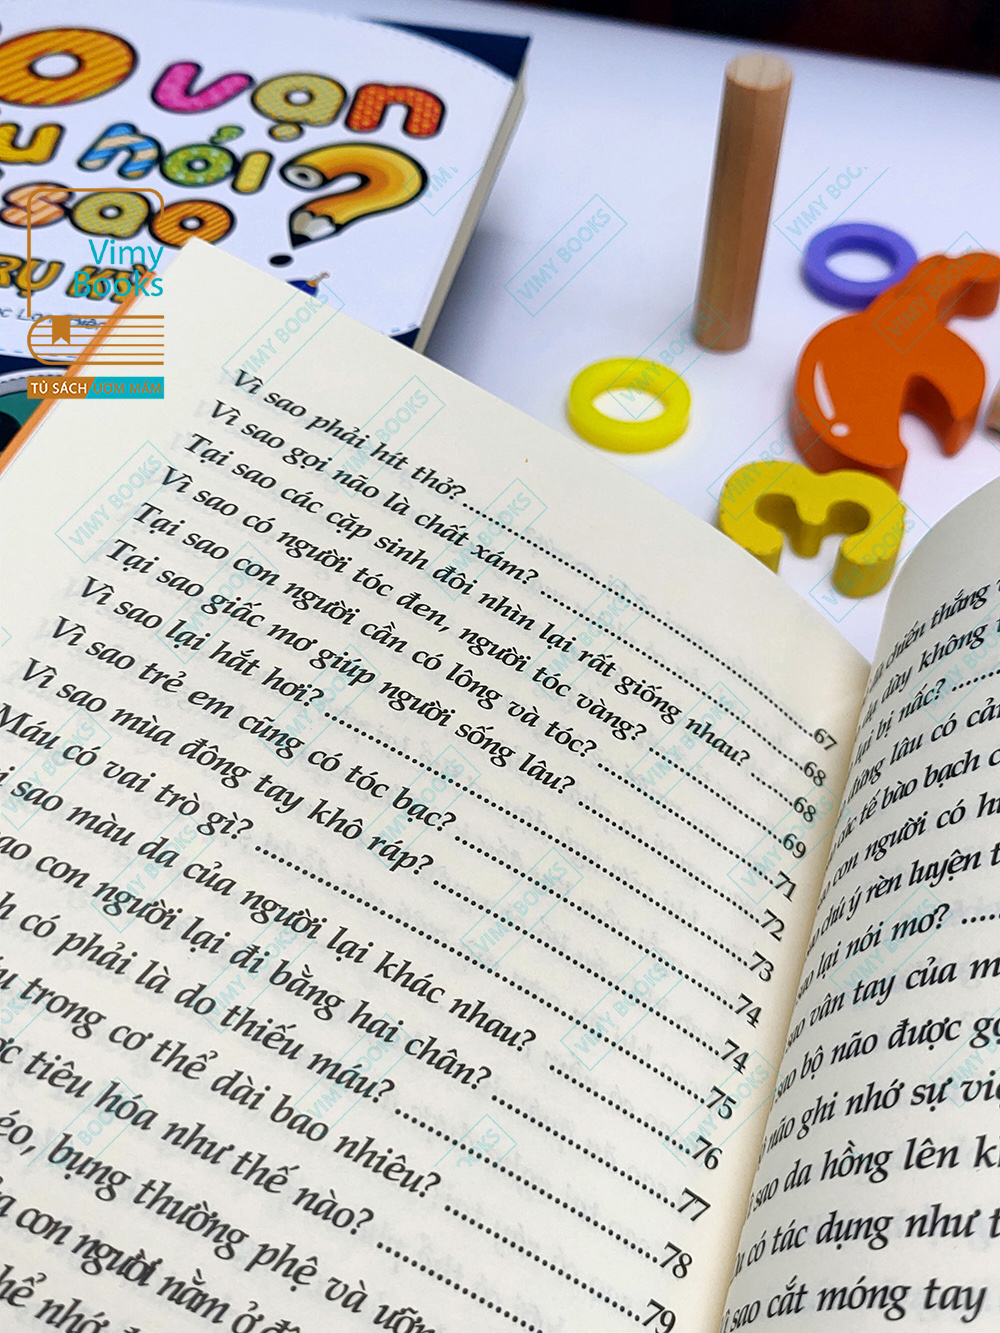 vạn
hỏi
sao
?
Vimy
Books
TỦ SÁCH ƯƠM MẦM
Vì sao phải hít thở? 67
Vì sao gọi não là chất xám? 68
Tại sao các cặp sinh đôi nhìn lại rất giống nhau? 68
Vì sao có người tóc đen, người tóc vàng? 69
Tại sao con người cần có lông và tóc? 71
Tại sao giấc mơ giúp người sống lâu? 72
Vì sao lại hắt hơi? 73
Vì sao trẻ em cũng có tóc bạc? 74
Vì sao mùa đông tay khô ráp? 74
Máu có vai trò gì? 75
sao màu da của người lại khác nhau? 76
con người lại đi bằng hai chân? 77
có phải là do thiếu máu? 78
trong cơ thể dài bao nhiêu? 79
tiêu hóa như thế nào?
bụng thường phệ và
con người nằm ở
nhớ
chiến thắng
dạy không
lại bị nấc?
đứng lâu có
các tế bào bạch
con người có
chú ý rèn luyện
sao lại nói mơ?
sao vân tay của
sao bộ não được
não ghi nhớ sự
sao da hồng lên
có tác dụng như
sao cắt móng tay
VIMY BOOKS